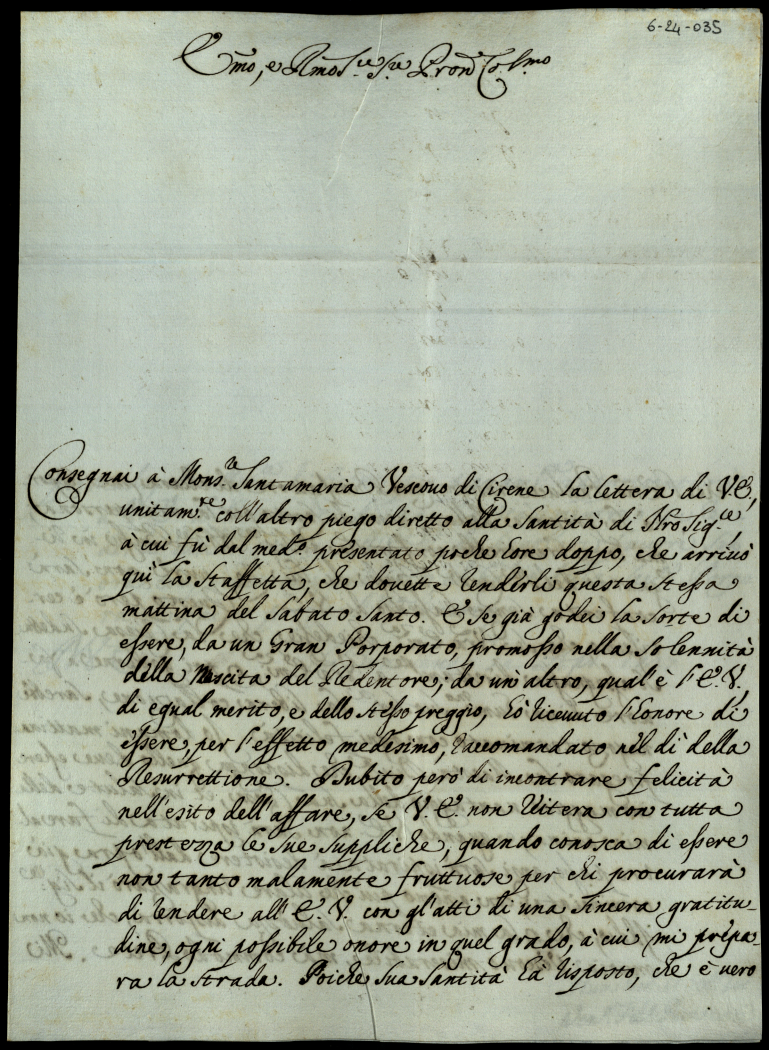 6-24-035
E.mo, e R.mo Sig.re Sig.re P.ron Col.mo
Consegnai à Mons.re Santamaria Vescouo di Cirene la lettera di V.E,
unitam.te coll'altro piego diretto alla Santità di Nro Sig.re,
à cui fù dal med.o presentato poche hore doppo, che arriuò
quì la Staffetta, che douette renderli questa stessa
mattina del Sabato Santo. E se già godei la sorte di
essere, da un Gran Porporato, promosso nella Solennità
della Nascita del Redentore; da un'altro, qual'è l'E.V,
di egual merito, e dello stesso preggio, hò riceuuto l'honore di
essere, per l'effetto medesimo, raccomandato nel dì della
Resurrettione. Dubito però di incontrare felicità
nell'esito dell'affare, se V.E. non ritera con tutta
prestezza le sue suppliche, quando conosca di essere
non tanto malamente fruttuose per chi procurarà
di rendere all'E.V. con gl'atti di una sincera gratitu-
dine, ogni possibile onore in quel grado, à cui mi prepa-
ra la strada. Poiche Sua Santità hà risposto, che è uero